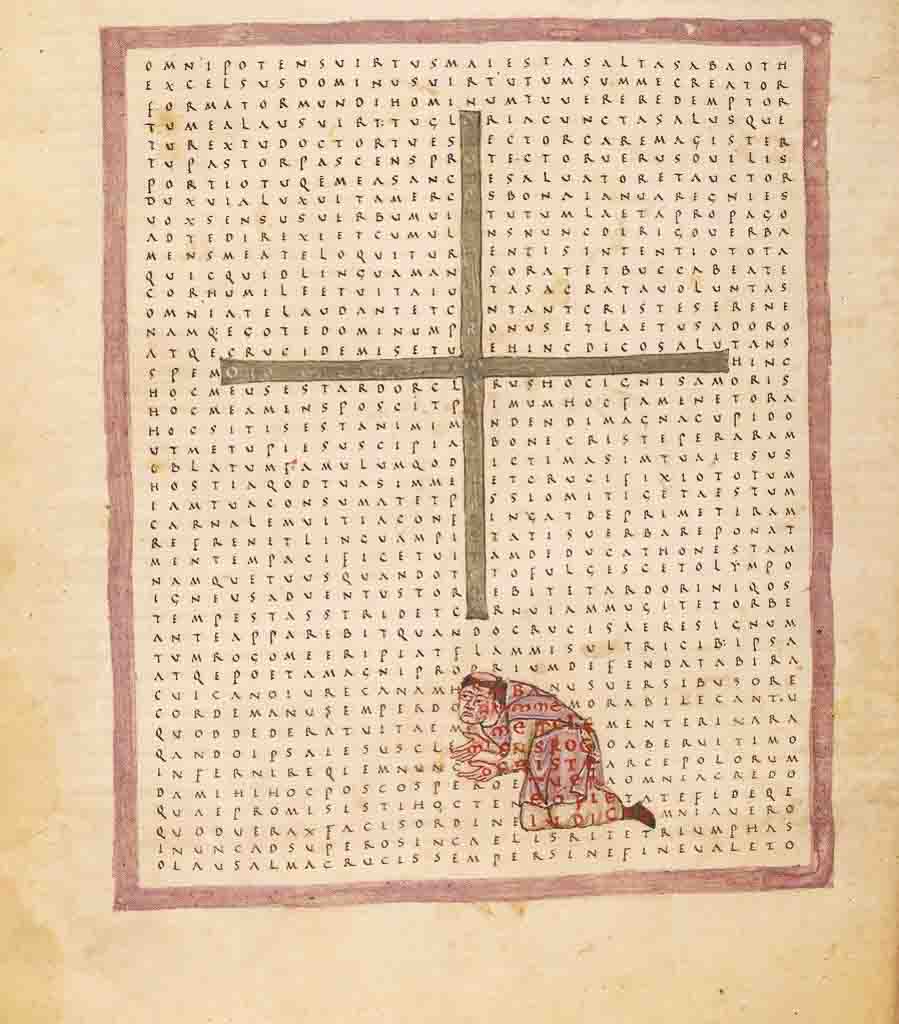 OMNIPOTENSUIRTUSMAIESTASALTASABAOTH
EXCELSUSDOMINUSUIRTUTUMSUMMECREATOR
FORMATORMUNDIHOMINUMTUUEREREDEMPTOR
TUMEALAUSUIRTUTUGLORIACUNCTASALUSQUE
TUREXTUDOCTORTUESRECTORCAREMAGISTER
TUPASTORPASCENSPROTECTORUERUSOUILIS
PORTIOTUQEMEASANCTESALUATORETAUCTOR
DUXUIALUXUITAMERCESBONAIANUAREGNIES
UOXSENSUSUERBUMUIRTUTUMLAETAPROPAGO
ADTEDIREXIETCUMULANSNUNCDIRIGOUERBA
MENSMEATELOQUITURMENTISINTENTIOTOTA
QUICQUIDLINGUAMANUSORATETBUCCABEATE
CORHUMILEETUITAIUSTASACRATAUOLUNTAS
OMNIATELAUDANTETCANTANTCRISTESERENE
NAMQ;EGOTEDOMINUMPRONUSETLAETUSADORO
ATQECRUCIDEMISETUAEHINCDICOSALUTANS
SPEMOROTERAMUSARAMARASUMARETOROHINC
HOCMEUSESTARDORCLARUSHOCIGNISAMORIS
HOCMEAMENSPOSCITPRIMUMHOCFAMENETORA
HOCSITISESTANIMIMANDENDIMAGNACUPIDO
UTMETUPIESUSCIPIASBONECRISTEPERARAM
OBLATUMFAMULUMQODUICTIMASIMTUAIESUS
HOSTIAQODTUASIMMEMETCRUCIFIXIOTOTUM
IAMTUACONSUMATETPASSIOMITIGETAESTUM
CARNALEMUITIACONFRINGATDEPRIMETIRAM
REFRENETLINGUAMPIETATISUERBAREPONAT
MENTEMPACIFICETUITAMDEDUCATHONESTAM
NAMQUETUUSQUANDOTOTOFULGESCETOLYMPO
IGNEUSADUENTUSTORREBITETARDORINIQOS
TEMPESTASSTRIDETCORNUIAMMUGITETORBE
ANTEAPPAREBITQUANDOCRUCISAERESIGNUM
TUMROGOMEERIPIATFLAMMISULTRICIB:IPSA
ATQEPOETAMAGNIPROPRIUMDEFENDATABIRA
CUICANOIURECANAMHRABANUSUERSIBUSORE
CORDEMANUSEMPERDONUMMEMORABILECANTU
QUODDEDERATUITAEMMEMETCLEMENTERINARA
QANDOIPSAIESUSCLEMENSROGOABERUITIMO
INFERNIREQIEMNUNCCRISTEARCEPOLORUM
DAMIHIHOCPOSCOSPEROETUEREAOMNIACREDO
QUAEPROMISISTIHOCTENEOPIETATEFIDEQE
QUODUERAXFACISORDINEIUDICIOMNIAUERO
INUNCADSUPEROSINCAELISRITETRIUMPHAS
OLAUSALMACRUCISSEMPERSINEFINEUALETO